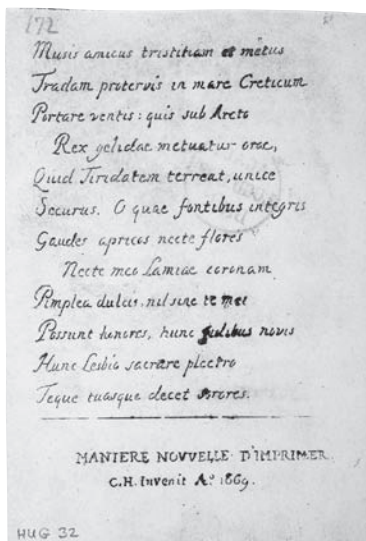 172
Musis amicus tristitiam et metus
Tradam protervis in mare Creticum
Portare ventis: quis sub Arcto
Rex gelidae metuatur orae,
Quid Tiridatem terreat, unice
Securus. O quae fontibus integris
Gaudes apricos necte flores
Necte meo Lamiae coronam
Pimplea dulcis, nil sine te mei
Possunt honores, hunc fidibus novis
Hunc Lesbio sacrare plectro
Teque tuasque decet sorores.
MANIERE NOVVELLE D'IMPRIMER.
C.H. Invenit A.° 1669.
HUG 32